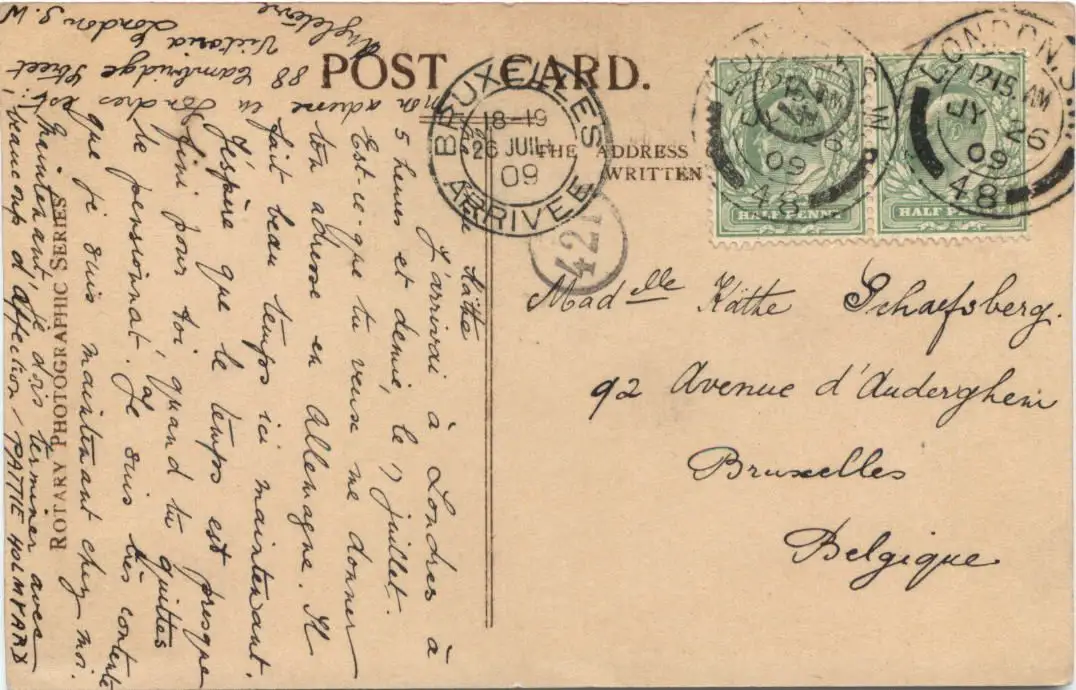 POST CARD.
THE ADDRESS
WRITTEN
BRUXELLES
18-19
26 JUIL
09
ARRIVEE
421
LONDON. S.W.
12 15. AM
JY 26
09
48
LONDON. S.
12 15. AM
JY 26
09
48
HALF PENNY
HALF PENNY
Mad elle Käthe Schafsberg.
92 Avenue d'Auderghem
Bruxelles
Belgique
Käthe
J'arrivai à Londres à
5 heures et demie, le 7 juillet.
Est-ce-que tu veuse me donner
ton adresse en Allemagne. Il
fait beau temps ici maintenant.
J'espère que le temps est presque
fini pour toi, quand tu quittes
le pensionnat. Je suis très contente
que je suis maintenant chez moi.
Maintenant, je dois terminer avec
beaucoup d'affection, PATTIE HOLMYARD
mon adresse en Londres est:
88 Cambridge Street,
Victoria
London S.W.
Angleterre
ROTARY PHOTOGRAPHIC SERIES